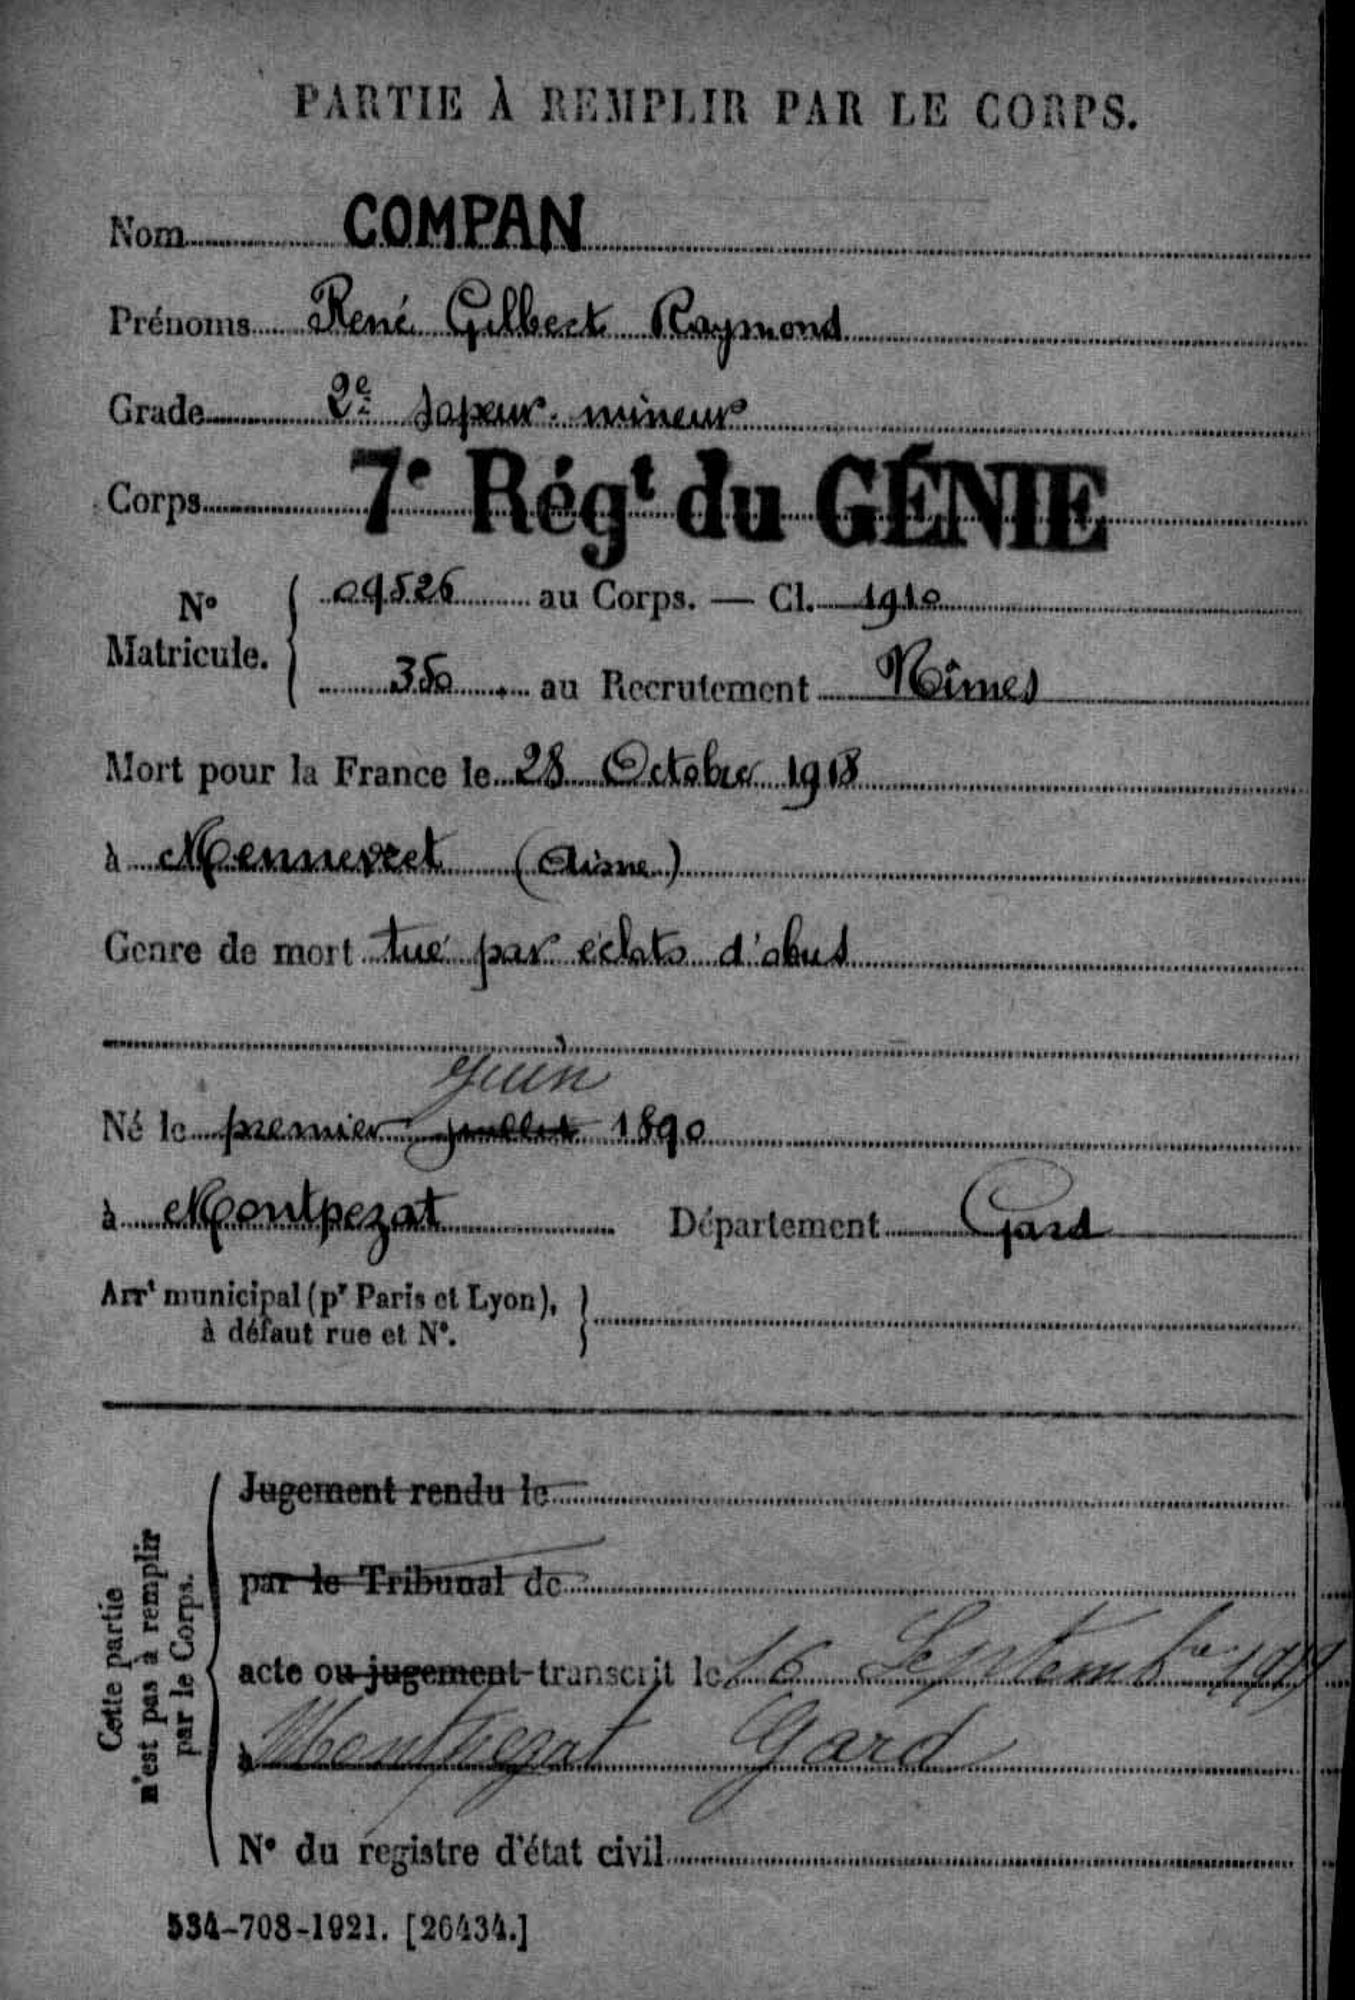 PARTIE À REMPLIR PAR LE CORPS.
Nom COMPAN
Prénoms René Gilbert Raymond
Grade 2e sapeur mineur
Corps 7e Régt du GÉNIE
No Matricule. 09526 au Corps. — Cl. 1910
350 au Recrutement Nîmes
Mort pour la France le 28 Octobre 1918
à Mennevret (Aisne)
Genre de mort tué par éclats d'obus
Juin
Né le premier juillet 1890
à Montpezat Département Gard
Arrt municipal (pr Paris et Lyon),
à défaut rue et No.
Cette partie
n'est pas à remplir
par le Corps.
Jugement rendu le
par le Tribunal de
acte ou jugement transcrit le 16 Septembre
à Montpezat Gard
No du registre d'état civil
534-708-1921. [26434.]